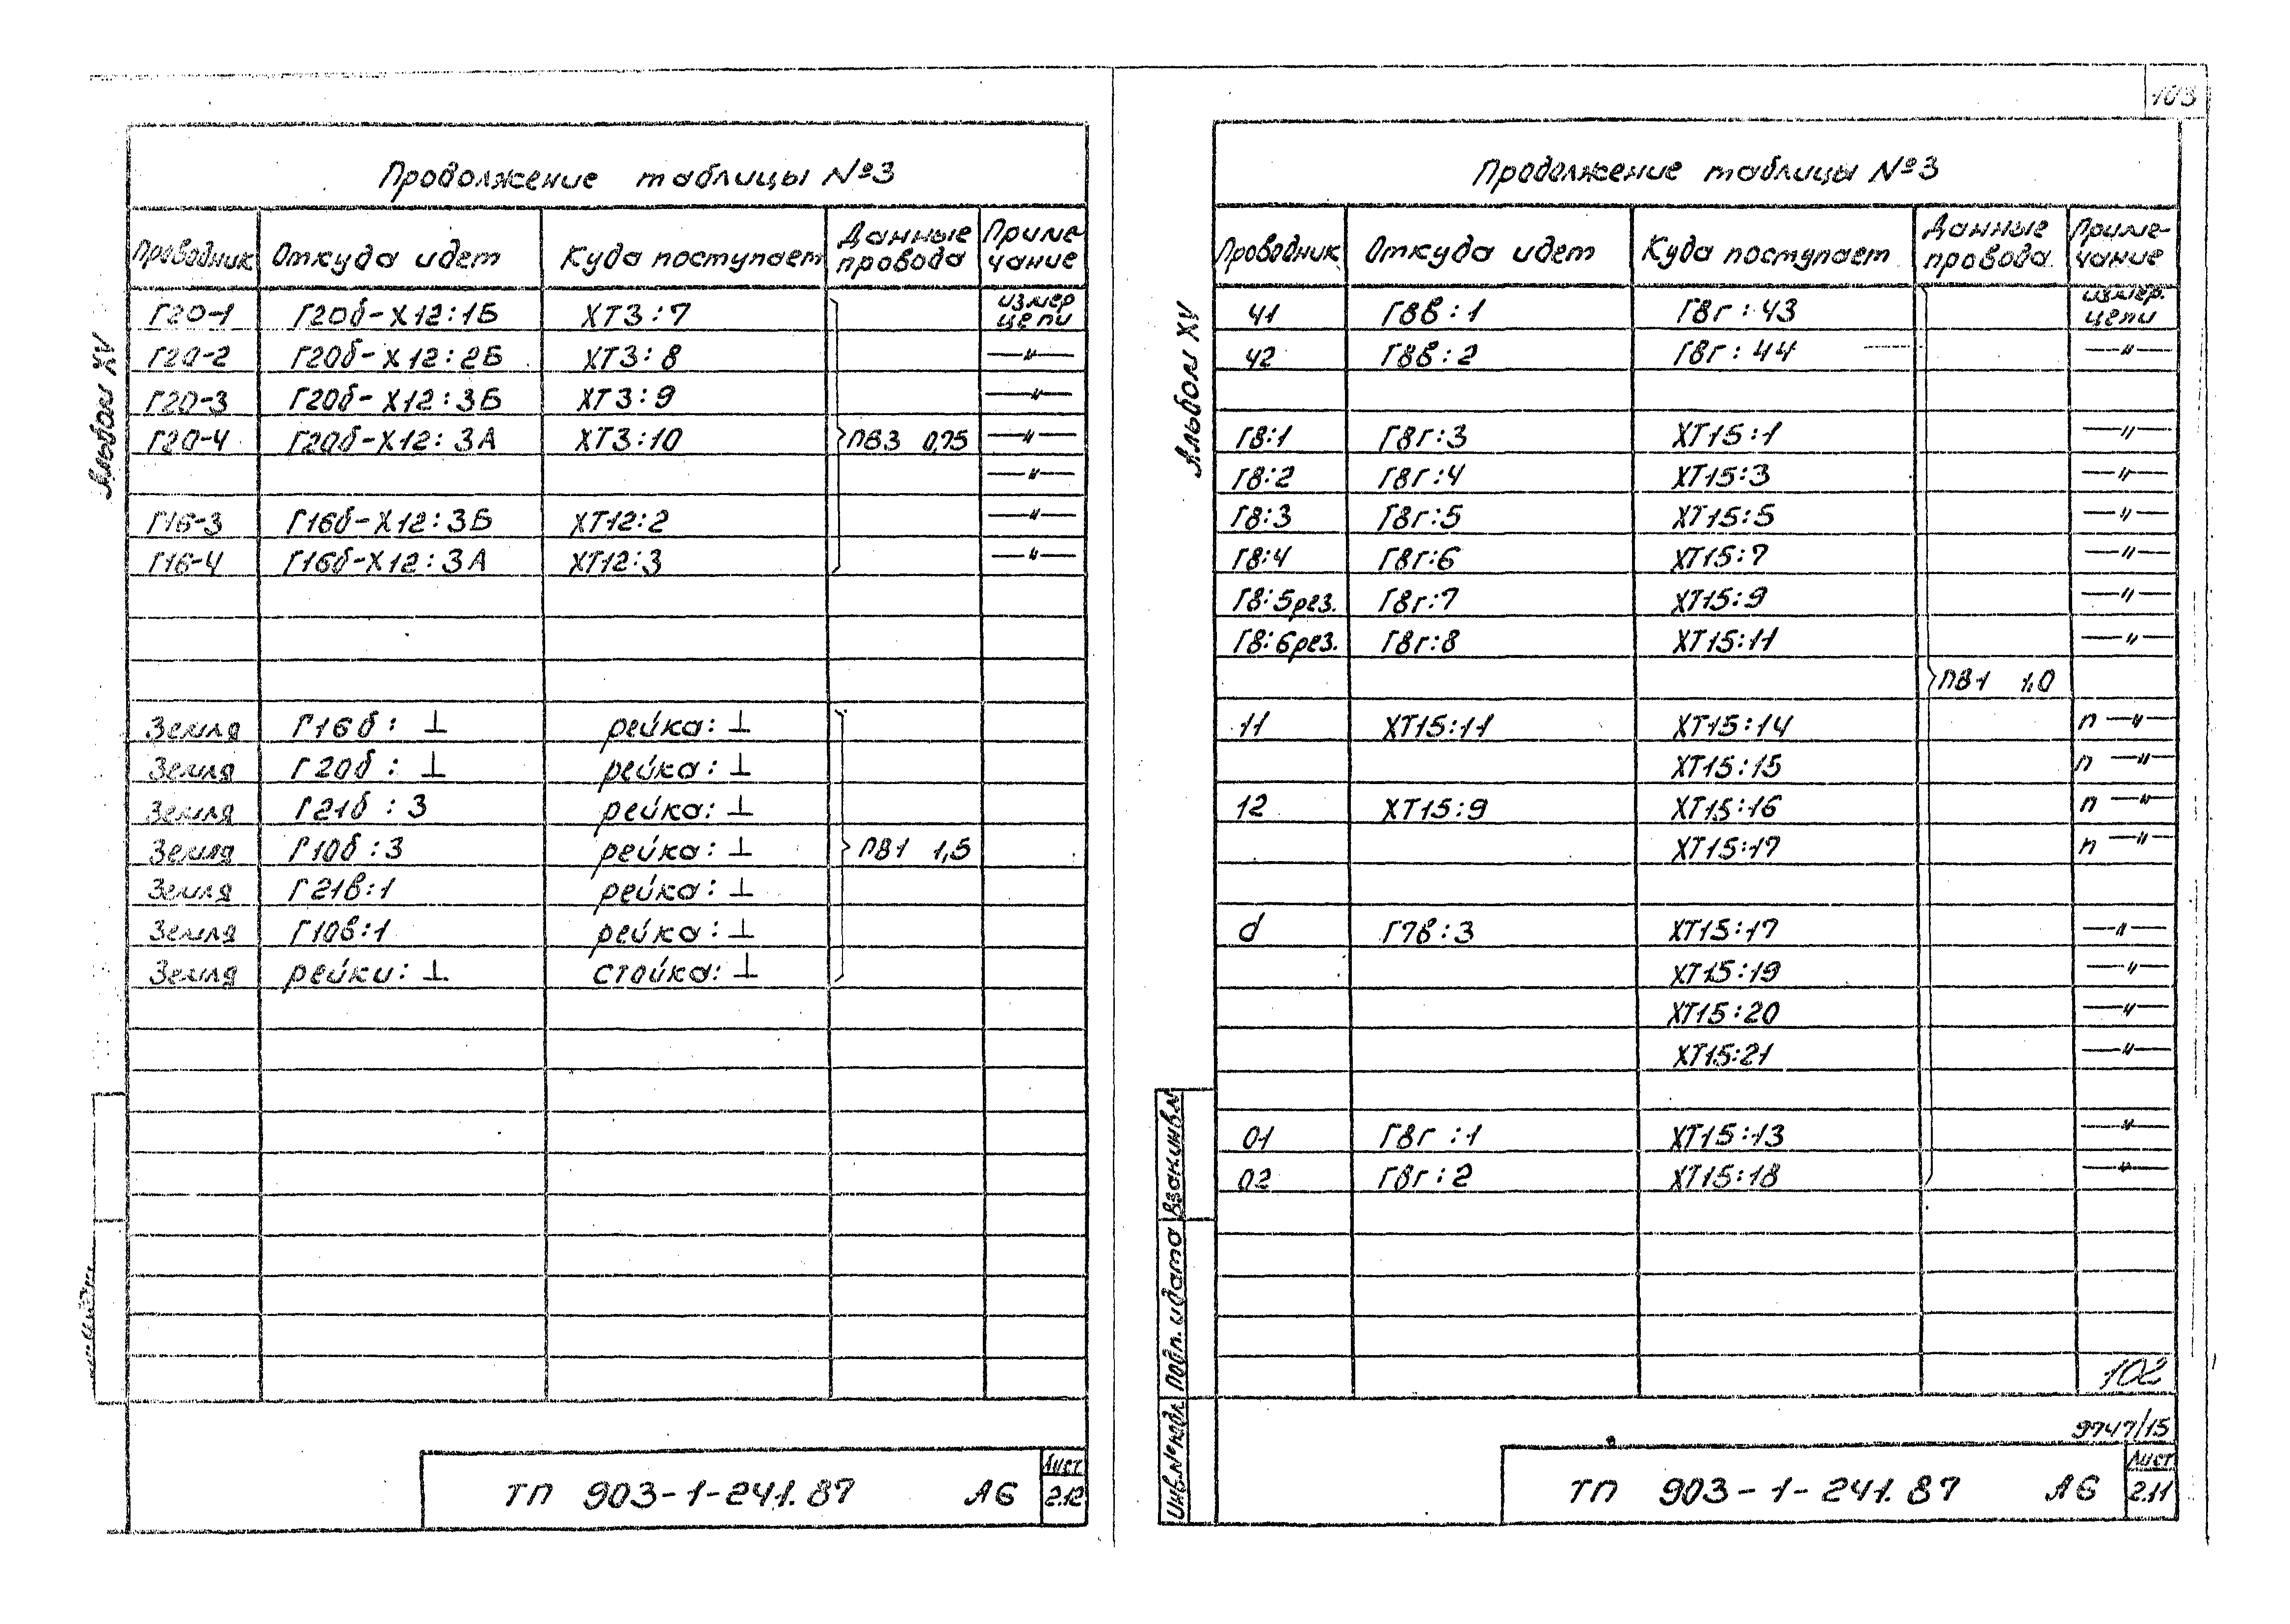 103
Альбом XV
Продолжение таблицы №3
Проводник Откуда идет Куда поступает Данные провода Примечание
Г20-1 Г20б-Х12:1Б ХТ3:7 измер цепи
Г20-2 Г20б-Х12:2Б ХТ3:8 —"—
Г20-3 Г20б-Х12:3Б ХТ3:9 —"—
Г20-4 Г20б-Х12:3А ХТ3:10 ПВ3 0,75 —"—
—"—
Г16-3 Г16б-Х12:3Б ХТ12:2 —"—
Г16-4 Г16б-Х12:3А ХТ12:3 —"—
Земля Г16б:⊥ рейка:⊥
Земля Г20б:⊥ рейка:⊥
Земля Г21б:3 рейка:⊥
Земля Г10б:3 рейка:⊥ ПВ1 1,5
Земля Г21в:1 рейка:⊥
Земля Г10в:1 рейка:⊥
Земля рейки:⊥ стойка:⊥
ТП 903-1-241.87 А6 Лист 2.12
Альбом XV
Продолжение таблицы №3
Проводник Откуда идет Куда поступает Данные провода Приме-чание
41 Г8в:1 Г8г:43 измер. цепи
42 Г8в:2 Г8г:44 —"—
Г8:1 Г8г:3 ХТ15:1 —"—
Г8:2 Г8г:4 ХТ15:3 —"—
Г8:3 Г8г:5 ХТ15:5 —"—
Г8:4 Г8г:6 ХТ15:7 —"—
Г8:5рез. Г8г:7 ХТ15:9 —"—
Г8:6рез. Г8г:8 ХТ15:11 —"—
ПВ1 1,0
11 ХТ15:11 ХТ15:14 п —"—
ХТ15:15 п —"—
12 ХТ15:9 ХТ15:16 п —"—
ХТ15:17 п —"—
d Г7в:3 ХТ15:17 —"—
ХТ15:19 —"—
ХТ15:20 —"—
ХТ15:21 —"—
01 Г8г:1 ХТ15:13 —"—
02 Г8г:2 ХТ15:18 —"—
102
9747/15
Инв.№подл. Подп. и дата Взам.инв.№
ТП 903-1-241.87 А6 Лист 2.11